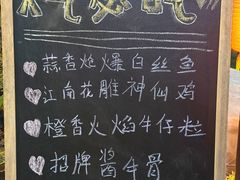 必吃
蒜香炝爆白丝鱼
江南花雕神仙鸡
橙香火焰牛仔粒
招牌酱牛骨